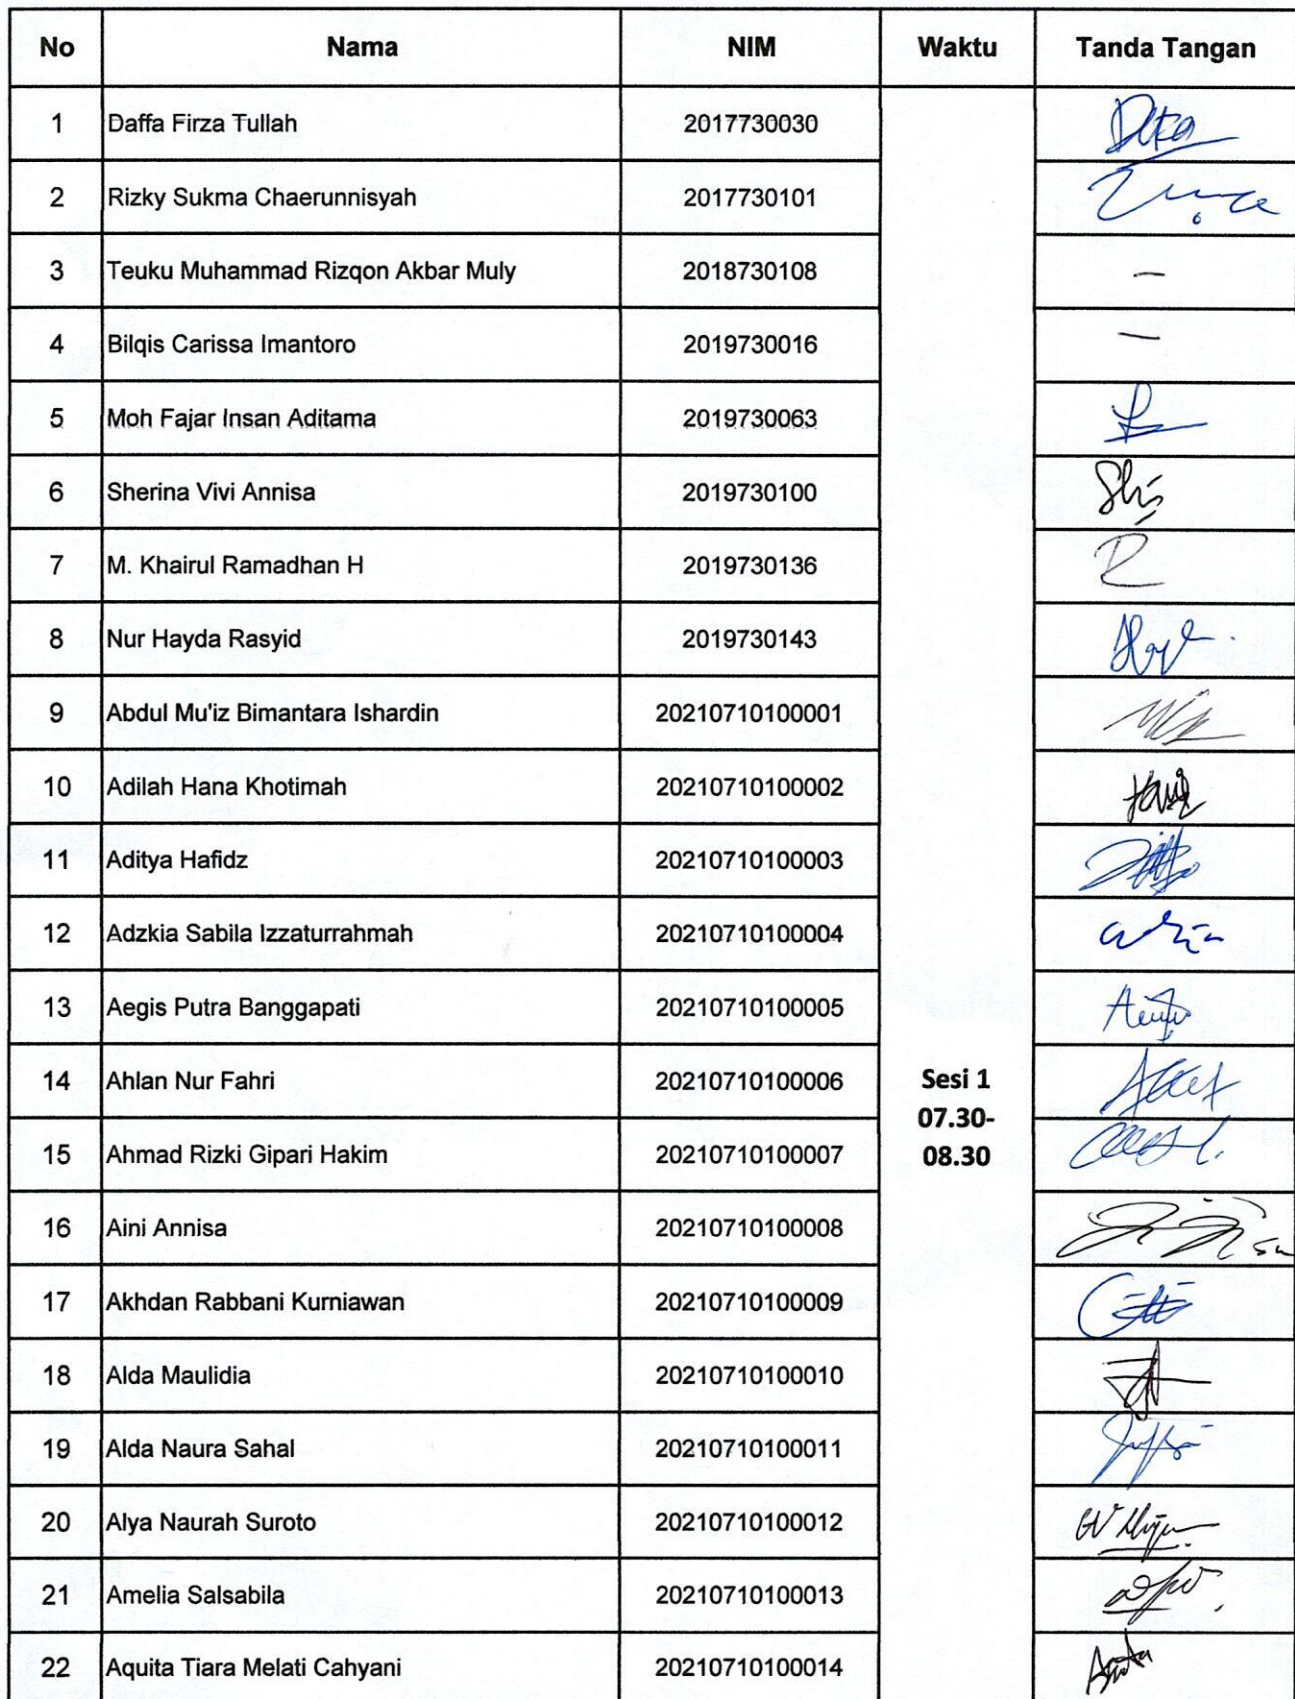 No Nama NIM Waktu Tanda Tangan
1 Daffa Firza Tullah 2017730030
2 Rizky Sukma Chaerunnisyah 2017730101
3 Teuku Muhammad Rizqon Akbar Muly 2018730108 —
4 Bilqis Carissa Imantoro 2019730016 —
5 Moh Fajar Insan Aditama 2019730063
6 Sherina Vivi Annisa 2019730100
7 M. Khairul Ramadhan H 2019730136
8 Nur Hayda Rasyid 2019730143
9 Abdul Mu'iz Bimantara Ishardin 20210710100001
10 Adilah Hana Khotimah 20210710100002
11 Aditya Hafidz 20210710100003
12 Adzkia Sabila Izzaturrahmah 20210710100004
13 Aegis Putra Banggapati 20210710100005
14 Ahlan Nur Fahri 20210710100006
Sesi 1
07.30-
08.30
15 Ahmad Rizki Gipari Hakim 20210710100007
16 Aini Annisa 20210710100008
17 Akhdan Rabbani Kurniawan 20210710100009
18 Alda Maulidia 20210710100010
19 Alda Naura Sahal 20210710100011
20 Alya Naurah Suroto 20210710100012
21 Amelia Salsabila 20210710100013
22 Aquita Tiara Melati Cahyani 20210710100014